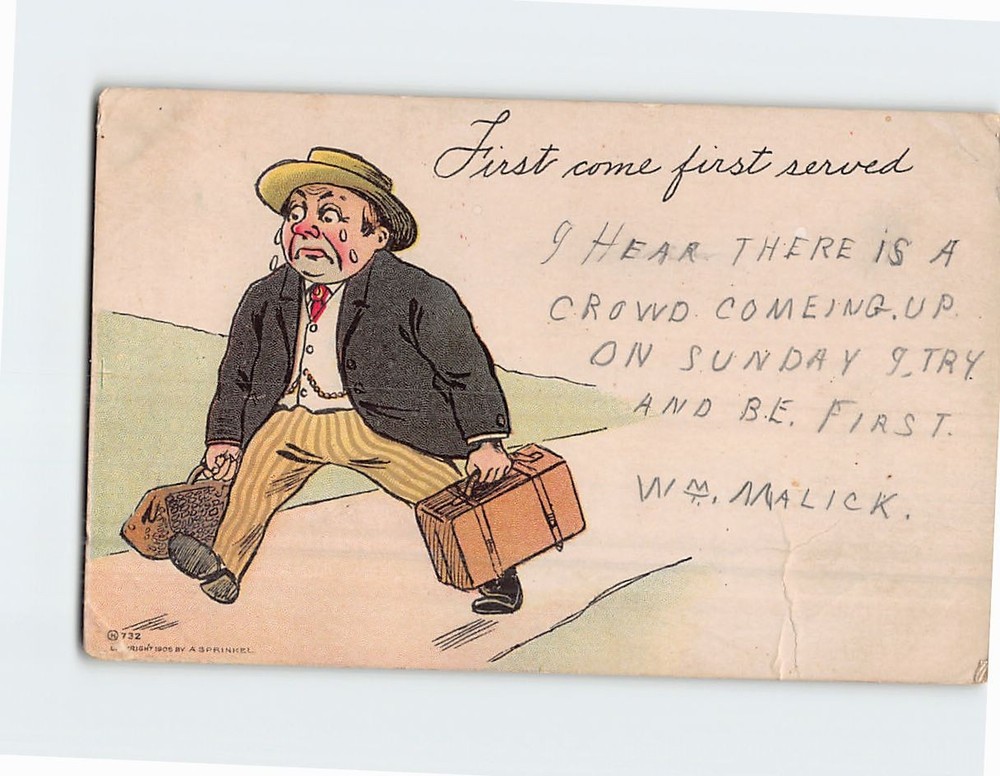 First come first served
I HEAR THERE IS A
CROWD. COMEING. UP.
ON SUNDAY I, TRY.
AND BE. FIRST.
Wm. MALICK.
H 732
RIGHT 1905 BY A SPRINKEL